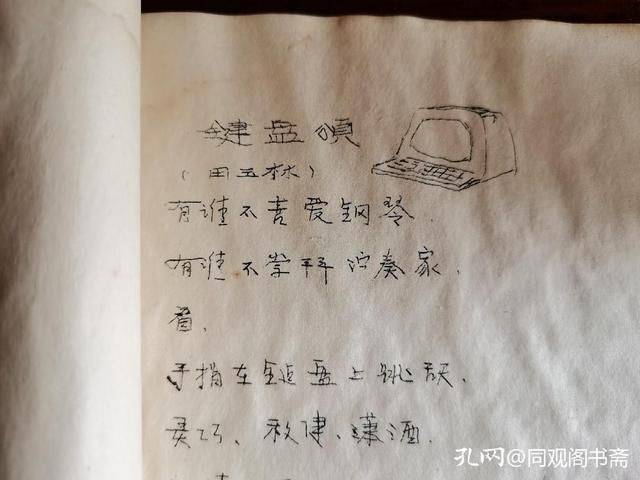 键盘頌
(田玉林)
有谁不喜爱钢琴.
有谁不崇拜演奏家.
看,
手指在键盘上跳跃.
灵巧、敏健、潇洒.
孔网@同观阁书斋